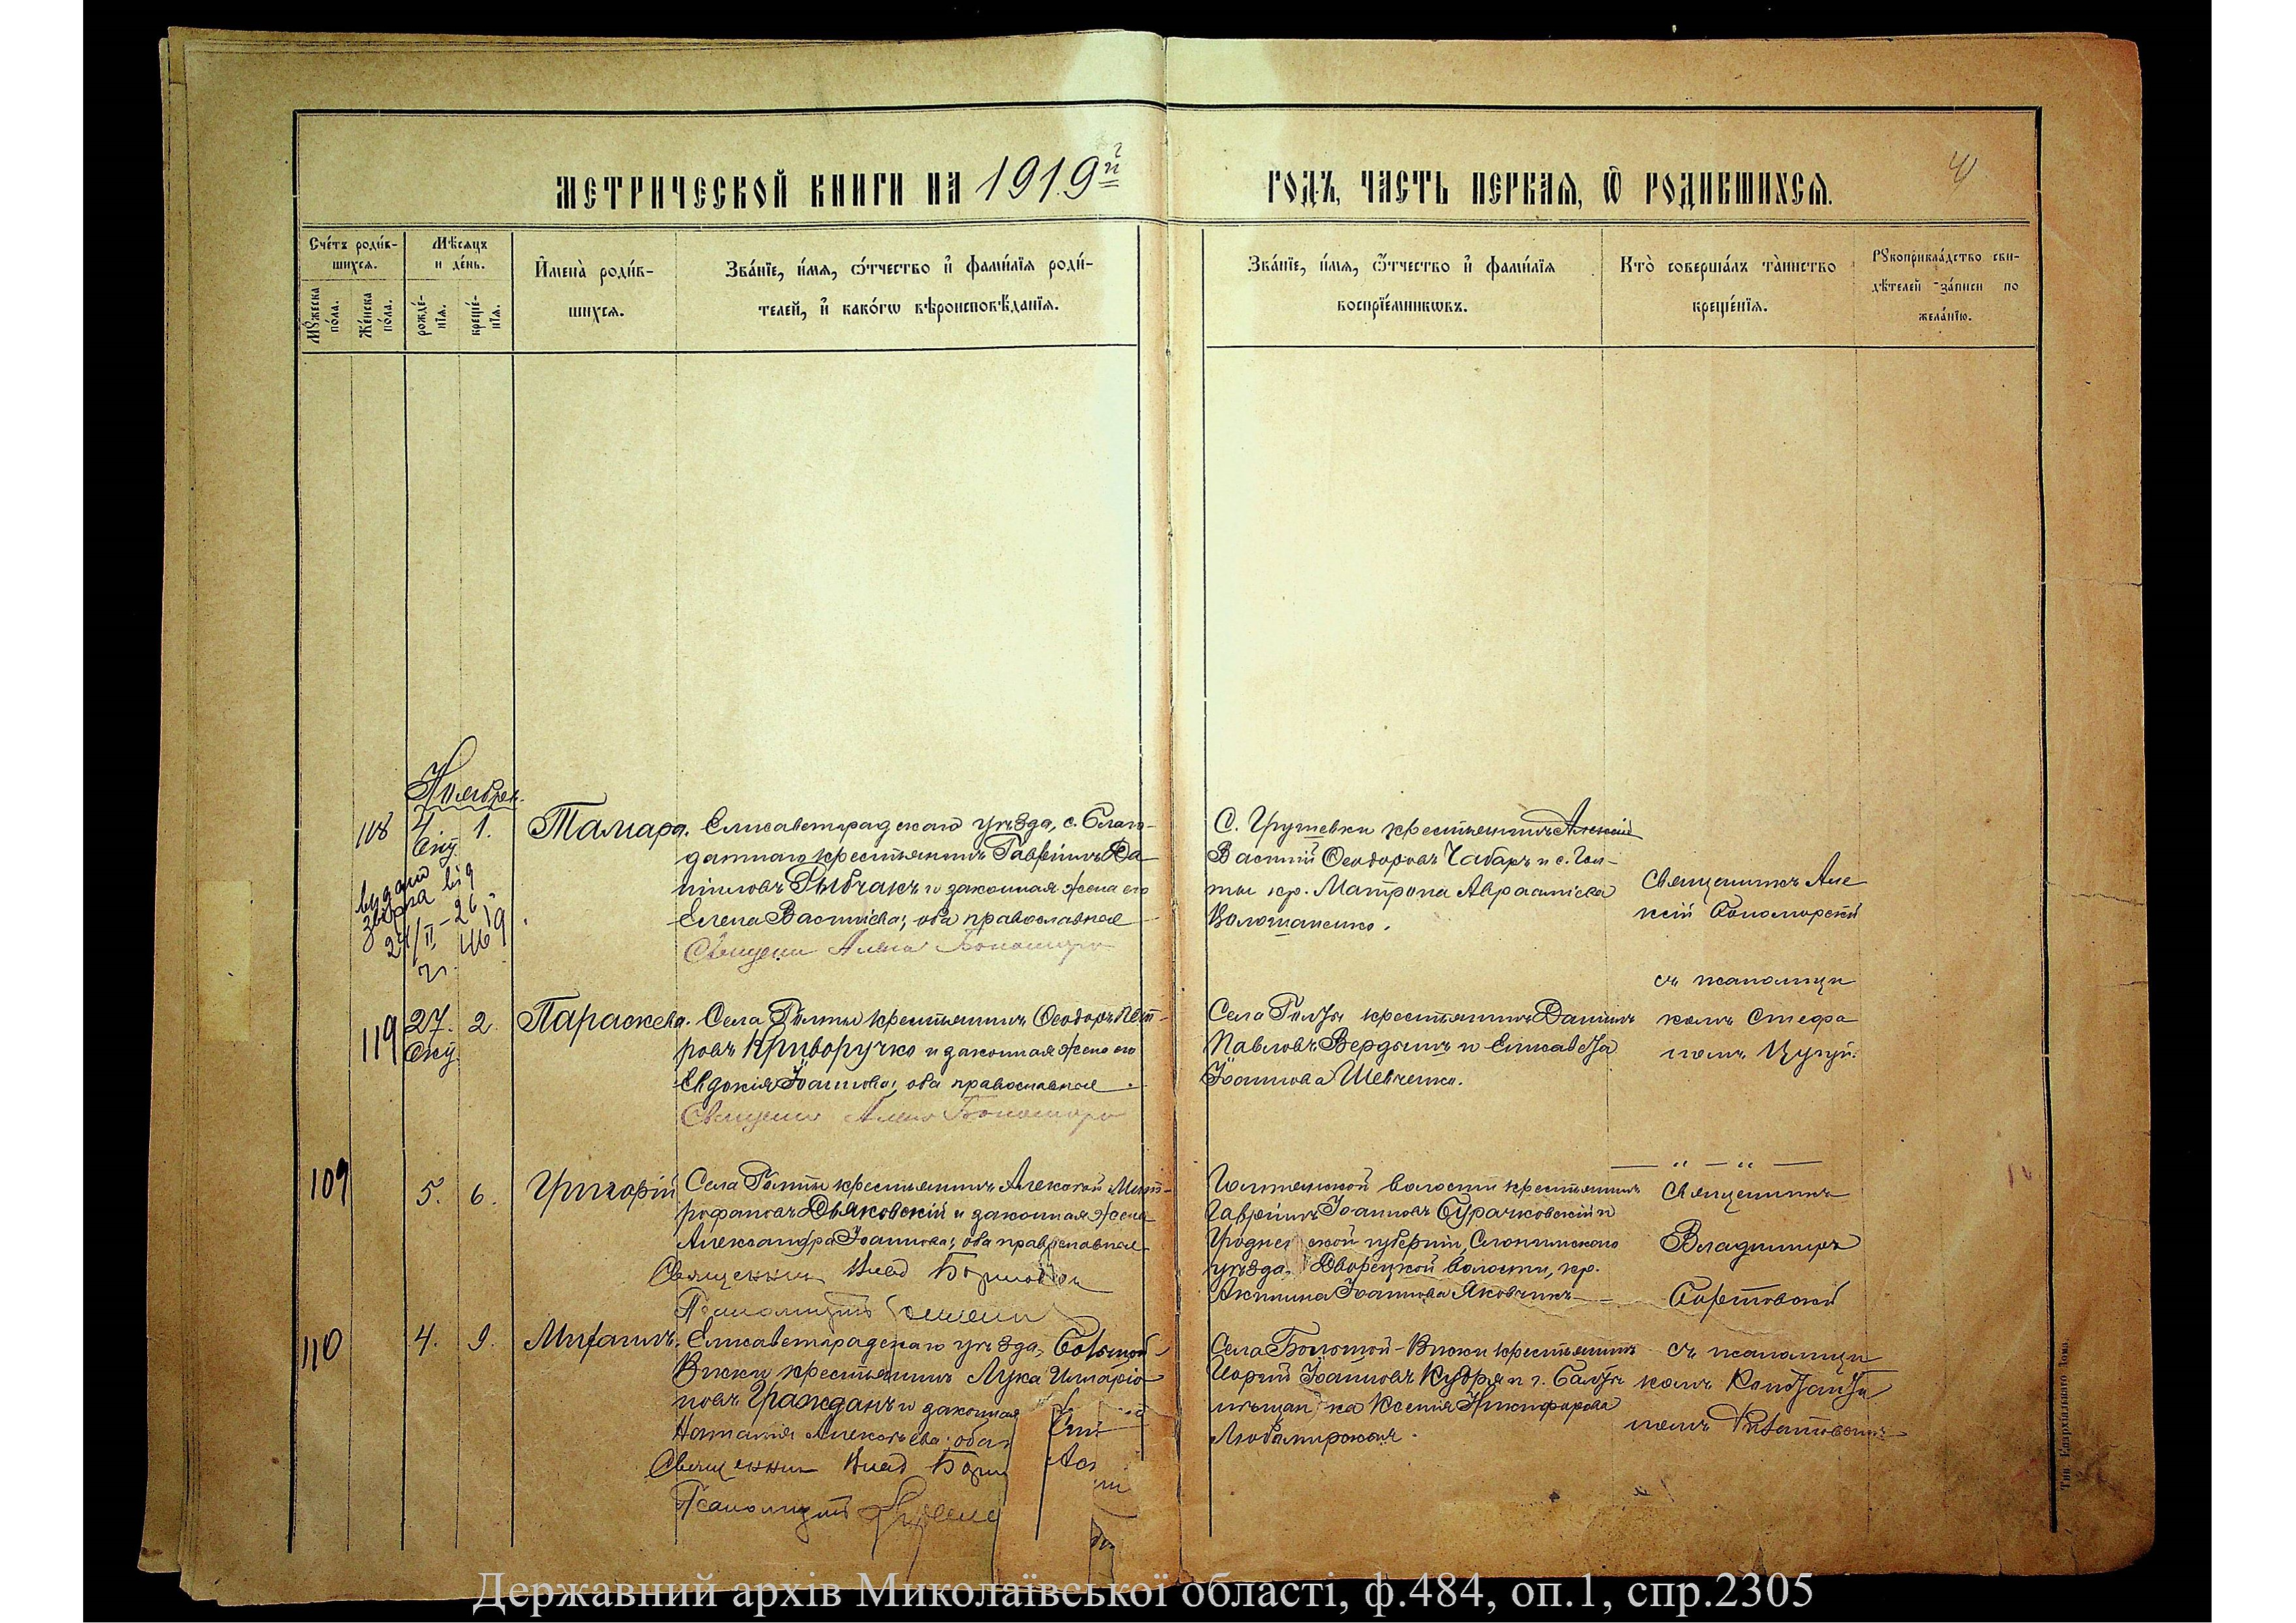 МЕТРИЧЕСКОЙ КНИГИ НА 1919й
ГОДЪ, ЧАСТЬ ПЕРВАЯ, Ѿ РОДИВШИХСЯ.
Счётъ родив-
шихся.
Мѣсяцъ
и день.
Имена родив-
шихся.
Званїе, имя, отчество и фамилїя роди-
телей, и какогѡ вѣроисповѣданїя.
Званїе, имя, ѻтчество и фамилїя
воспрїемникѡвъ.
Кто совершалъ таинство
крещенїя.
Рꙋкоприкладство сви-
дѣтелей записи по
желанїю.
Мꙋжеска
пола.
Женска
пола.
рожде-
нїя.
креще-
нїя.
Ноябрь.
118 4 1. Тамара. Елисаветградскаго уѣзда, с. Благо-
датнаго крестьянинъ Гавріилъ Да-
ніиловъ Рыбчакъ и законная жена его
Елена Васильева; оба православные
С. Грушевки крестьянинъ Алексій
Василій Ѳеодоровъ Чабаръ и с. Гол-
ты кр. Матрона
Волошаненко.
Священникъ Але
ксій
видано
24/II-26
119 27. 2. Параскева. Села Голты крестьянинъ Ѳеодоръ Пет-
ровъ Криворучко и законная жена его
Евдокія Іоаннова; оба православные.
Села Голты крестьянинъ Даніилъ
Павловъ Вердышъ и Елисавета
Іоаннова Шевченко.
съ псаломщи
комъ Стефа
номъ
109 5. 6. Григорій Села Голты крестьянинъ Алексѣй Мит-
рофановъ Дьяковскій и законная жена
Александра Іоаннова; оба православные
Священникъ Влад
Псаломщикъ
Голтянской волости крестьянинъ
Гавріилъ Іоанновъ Бурачковскій и
Гродненской губерніи, Слонимскаго
уѣзда, Дворецкой волости, кр.
Акилина Іоаннова Яковчикъ
Священникъ
Владиміръ
110 4. 9. Михаилъ. Елисаветградскаго уѣзда, Большой-
Виски крестьянинъ Лука Иларіо-
новъ Гражданъ и законная
Наталія Алексѣева; оба
Священникъ Влад
Псаломщикъ
Села Большой-Виски крестьянинъ
Георгій Іоанновъ Кудря и г. Балты
мѣщанка Ксенія Никифорова
Любомирская.
съ псаломщи
комъ Константи
номъ
Тип. Епархіальнаго Дома.
Державний архів Миколаївської області, ф.484, оп.1, спр.2305